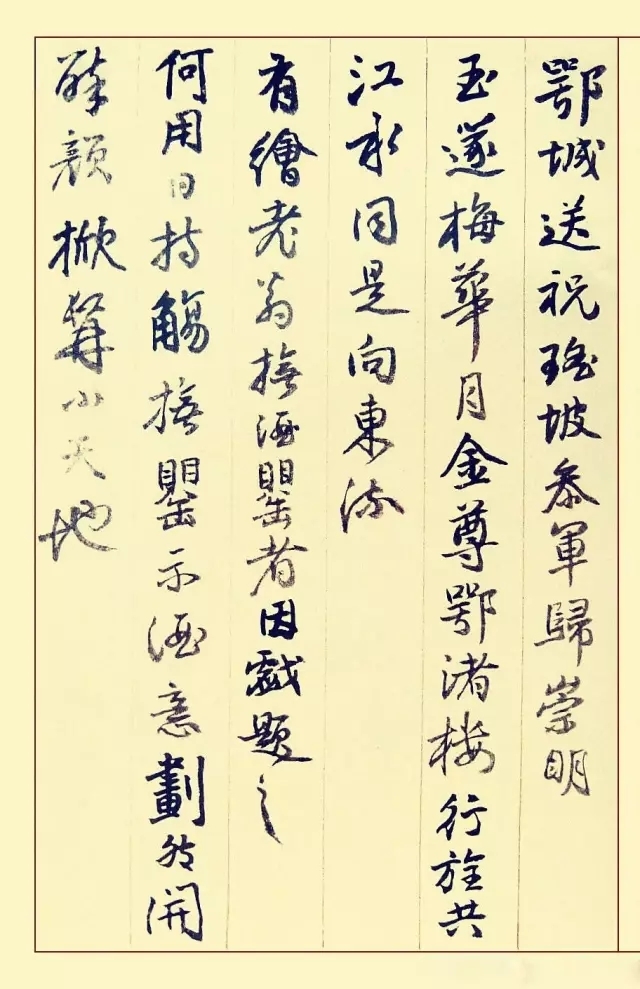 鄂城送祝瑤坡參軍歸崇明
玉邃梅華月金尊鄂渚樓行旌共
江水同是向東流
有繪老翁撫酒罌者因戲題之
何用日持觴撫罌示酒意劃然開
酡顏掀髯小天地